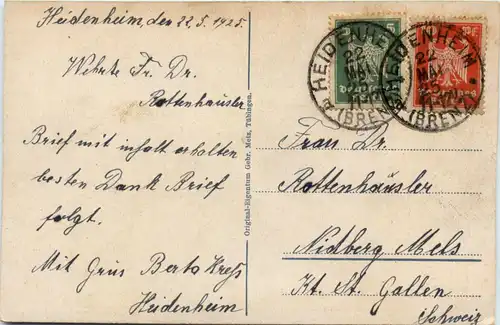 Heidenheim, den 22.5.1925.
Wehrte Fr. Dr.
Rottenhäusler
Brief mit inhalt erhalten
besten Dank Brief
folgt.
Mit Grüs Berta Kress
Heidenheim
Original-Eigentum Gebr. Metz, Tübingen.
HEIDENHEIM
22
MAI
11-12
(BRENZ)
HEIDENHEIM
22
MAI
11-12
(BRENZ)
Frau Dr.
Rottenhäusler
Nidberg Mels
Kt. St Gallen
Schweiz